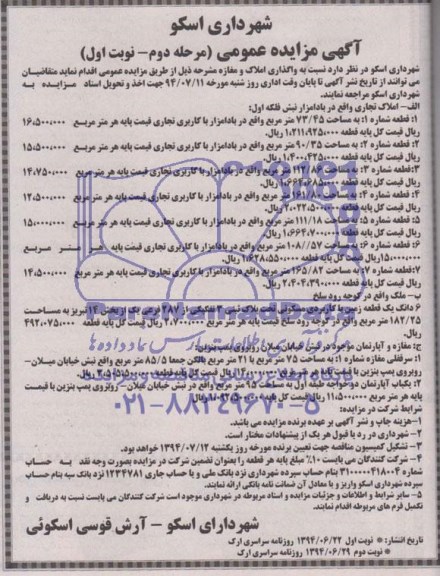 شهرداری اسکو
آگهی مزایده عمومی (مرحله دوم- نوبت اول)
شهرداری اسکو در نظر دارد نسبت به واگذاری املاک و مغازه مشرحه ذیل از طریق مزایده عمومی اقدام نماید متقاضیان
می توانند از تاریخ نشر آگهی تا پایان وقت اداری روز شنبه مورخه ۹۴/۰۷/۱۱ جهت اخذ و تحویل اسناد مزایده به
شهرداری اسکو مراجعه نمایند.
الف- املاک تجاری واقع در بادامزار نبش فلکه اول:
۱: قطعه شماره ۱: به مساحت ۷۳/۴۵ متر مربع واقع در بادامزار با کاربری تجاری قیمت پایه هر متر مربع ۱۶,۵۰۰,۰۰۰
ریال قیمت کل پایه قطعه ۱,۲۱۱,۹۲۵,۰۰۰ ریال.
۲: قطعه شماره ۲: به مساحت ۹۰/۳۵ متر مربع واقع در بادامزار با کاربری تجاری قیمت پایه هر متر مربع ۱۵,۵۰۰,۰۰۰
ریال قیمت کل پایه قطعه ۱,۴۰۰,۴۲۵,۰۰۰ ریال.
۳: قطعه شماره ۳: به مساحت ۱۱۲/۸۶ متر مربع واقع در بادامزار با کاربری تجاری قیمت پایه هر متر مربع ۱۴,۷۵۰,۰۰۰
ریال قیمت کل پایه قطعه ۱,۶۶۴,۶۸۵,۰۰۰ ریال.
۴: قطعه شماره ۴: به مساحت ۱۶۱/۸۰ متر مربع واقع در بادامزار با کاربری تجاری قیمت پایه هر متر مربع ۱۲,۵۰۰,۰۰۰
ریال قیمت کل پایه قطعه ۲,۰۲۲,۵۰۰,۰۰۰ ریال.
۵: قطعه شماره ۵: به مساحت ۱۱۱/۱۸ متر مربع واقع در بادامزار با کاربری تجاری قیمت پایه هر متر مربع ۱۵,۰۰۰,۰۰۰
ریال قیمت کل پایه قطعه ۱,۶۶۴,۷۰۰,۰۰۰ ریال.
۶: قطعه شماره ۶: به مساحت ۱۰۸/۵۷ متر مربع واقع در بادامزار با کاربری تجاری قیمت پایه هر متر مربع
۱۵,۰۰۰,۰۰۰ ریال قیمت کل پایه قطعه ۱,۶۲۸,۵۵۰,۰۰۰ ریال.
۷: قطعه شماره ۷: به مساحت ۱۶۵/۸۲ متر مربع واقع در بادامزار با کاربری تجاری قیمت پایه هر متر مربع ۱۴,۵۰۰,۰۰۰
ریال قیمت کل پایه قطعه ۲,۴۰۴,۳۹۰,۰۰۰ ریال.
ب- ملک واقع در کوجه رود سلخ
۶ دانگ یک قطعه زمین با کاربری مسکونی تحت پلاک ثبتی ۳ تفکیکی از ۱۸۷ فرعی یک از بخش ۱۴ تبریز به مساحت
۱۸۲/۲۵ متر مربع واقع در کوجه رود سلخ قیمت پایه هر متر مربع ۲,۷۰۰,۰۰۰ ریال قیمت کل پایه قطعه ۴۹۲۰۷۵۰۰۰
ریال.
ج: مغازه و آپارتمان مزبور در نبش خیابان میلان روبروی پمپ بنزین:
۱: سرقفلی مغازه شماره ۱: به مساحت ۷۵ متر مربع با ۲۱ متر مربع بالکن جمعا ۸۵/۵ متر مربع واقع در نبش خیابان میلان-
روبروی پمپ بنزین با قیمت پایه هر متر مربع ریال قیمت کل پایه ریال.
۲: یکباب آپارتمان دو خوابه طبقه اول به مساحت ۹۵ متر مربع واقع در نبش خیابان میلان- روبروی پمپ بنزین با قیمت
پایه هر متر مربع ۱۱,۵۰۰,۰۰۰ ریال قیمت کل پایه ۱,۰۹۲,۵۰۰,۰۰۰ ریال.
شرایط شرکت در مزایده:
۱- هزینه چاپ و نشر آگهی بر عهده برنده مزایده می باشد.
۲- شهرداری در رد یا قبول هر یک از پیشنهادات مختار است.
۳- تشکیل کمیسیون مناقصه جهت تعیین برنده مزایده مورخه روز یکشنبه ۱۳۹۴/۰۷/۱۲ خواهد بود.
۴- شرکت کنندگان می بایست ۱۰٪ مبلغ پایه هر قطعه را بعنوان تضمین شرکت در مزایده بصورت وجه نقد به حساب
شماره ۳۱۰۰۰۰۰۴۱۸۰۰۴ بنام سپرده شهرداری نزد بانک ملی و یا حساب جاری ۱۲۳۴۷۸۱ نزد بانک سپه بنام حساب
سپرده شهرداری اسکو واریز و یا معادل آن ضمانت نامه بانکی ارائه نمایند.
۵- سایر شرایط و اطلاعات و جزئیات مزایده و اسناد مربوطه در شهرداری موجود است شرکت کنندگان می بایست نسبت به دریافت و
تکمیل فرم های مربوطه اقدام نمایند.
شهردارای اسکو - آرش قوسی اسکوئی
تاریخ انتشار: * نوبت اول ۱۳۹۴/۰۶/۲۲ روزنامه سراسری ارک
* نوبت دوم ۱۳۹۴/۰۶/۲۹ روزنامه سراسری ارک
۰۲۱-۸۸۳۴۹۶۷۰-۵